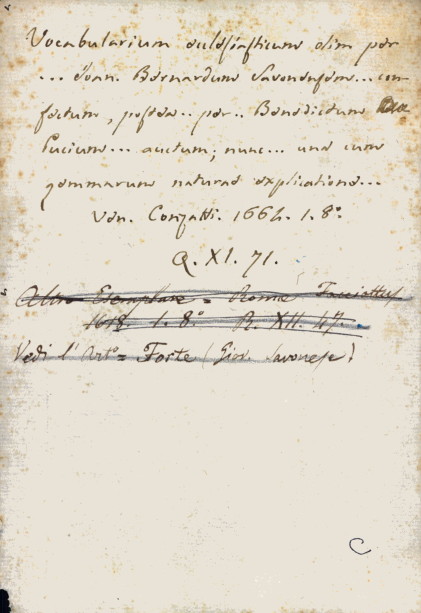 Vocabularium ecclesiasticum olim per
... Joan. Bernardum Savonensem... con
fectum, postea.. per.. Benedictum
Pucium... auctum; nunc... una cum
gemmarum naturae explicatione...
Ven. Conzatti. 1664. 1. 8°.
Q. XI. 71.
Altro Esemplare = Romae Facciottus
1618. 1. 8.° R. XII. 47.
Vedi l'Art.° = Forte (Giov. Savonese)
C